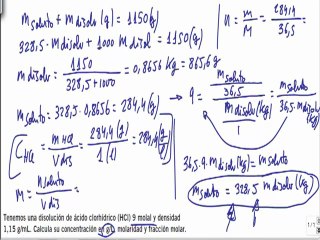 m soluto + m disolv (g) = 1150 (g)
328,5 · m disolv + 1000 m disol = 1150 (g)
m disolv = 1150 / (328,5 + 1000) = 0,8656 kg = 865,6 g
m soluto = 328,5 · 0,8656 = 284,4 (g)
C HCl = m HCl / V dis = 284,4 (g) / 1 (l) = 284,4 (g/l)
M = n soluto / V dis =
n = m / M = 284,4 / 36,5 =
9 = (m soluto / 36,5) / (m disolv (kg) / 1) = m soluto / (36,5 · m disolv (kg))
36,5 · 9 · m disolv (kg) = m soluto
m soluto = 328,5 m disolv (kg)
Tenemos una disolución de ácido clorhídrico (HCl) 9 molal y densidad
1,15 g/mL. Calcula su concentración en g/L, molaridad y fracción molar.